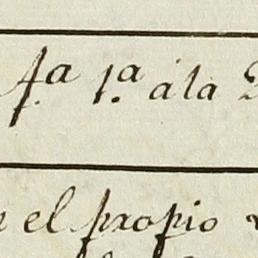 4.ª 1.ª á la
el propio